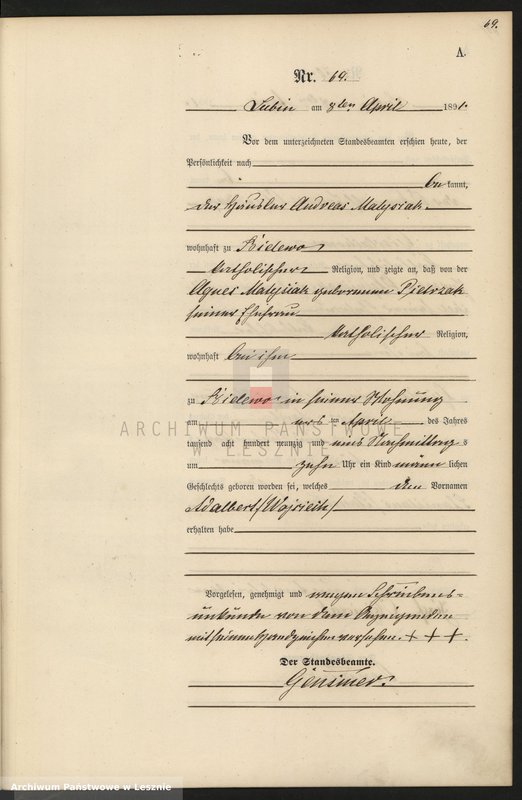 69.
A.
Nr. 69.
Lubin am 8ten April 1891.
Vor dem unterzeichneten Standesbeamten erschien heute, der
Persönlichkeit nach
bekannt,
der Häusler Andreas Matysiak
wohnhaft zu
katholischer Religion, und zeigte an, daß von der
Agnes Matysiak geborenen Pietrzak
seiner Ehefrau
katholischer Religion,
wohnhaft bei ihm
zu in seiner Wohnung
am ten April des Jahres
tausend acht hundert neunzig und eins Nachmittags
um zehn Uhr ein Kind männlichen
Geschlechts geboren worden sei, welches den Vornamen
Adalbert (Wojciech)
erhalten habe
Vorgelesen, genehmigt und wegen Schreibens=
unkunde von dem Anzeigenden
mit seinem Handzeichen versehen. + + +.
Der Standesbeamte.
ARCHIWUM PAŃSTWOWE
W LESZNIE
Archiwum Państwowe w Lesznie